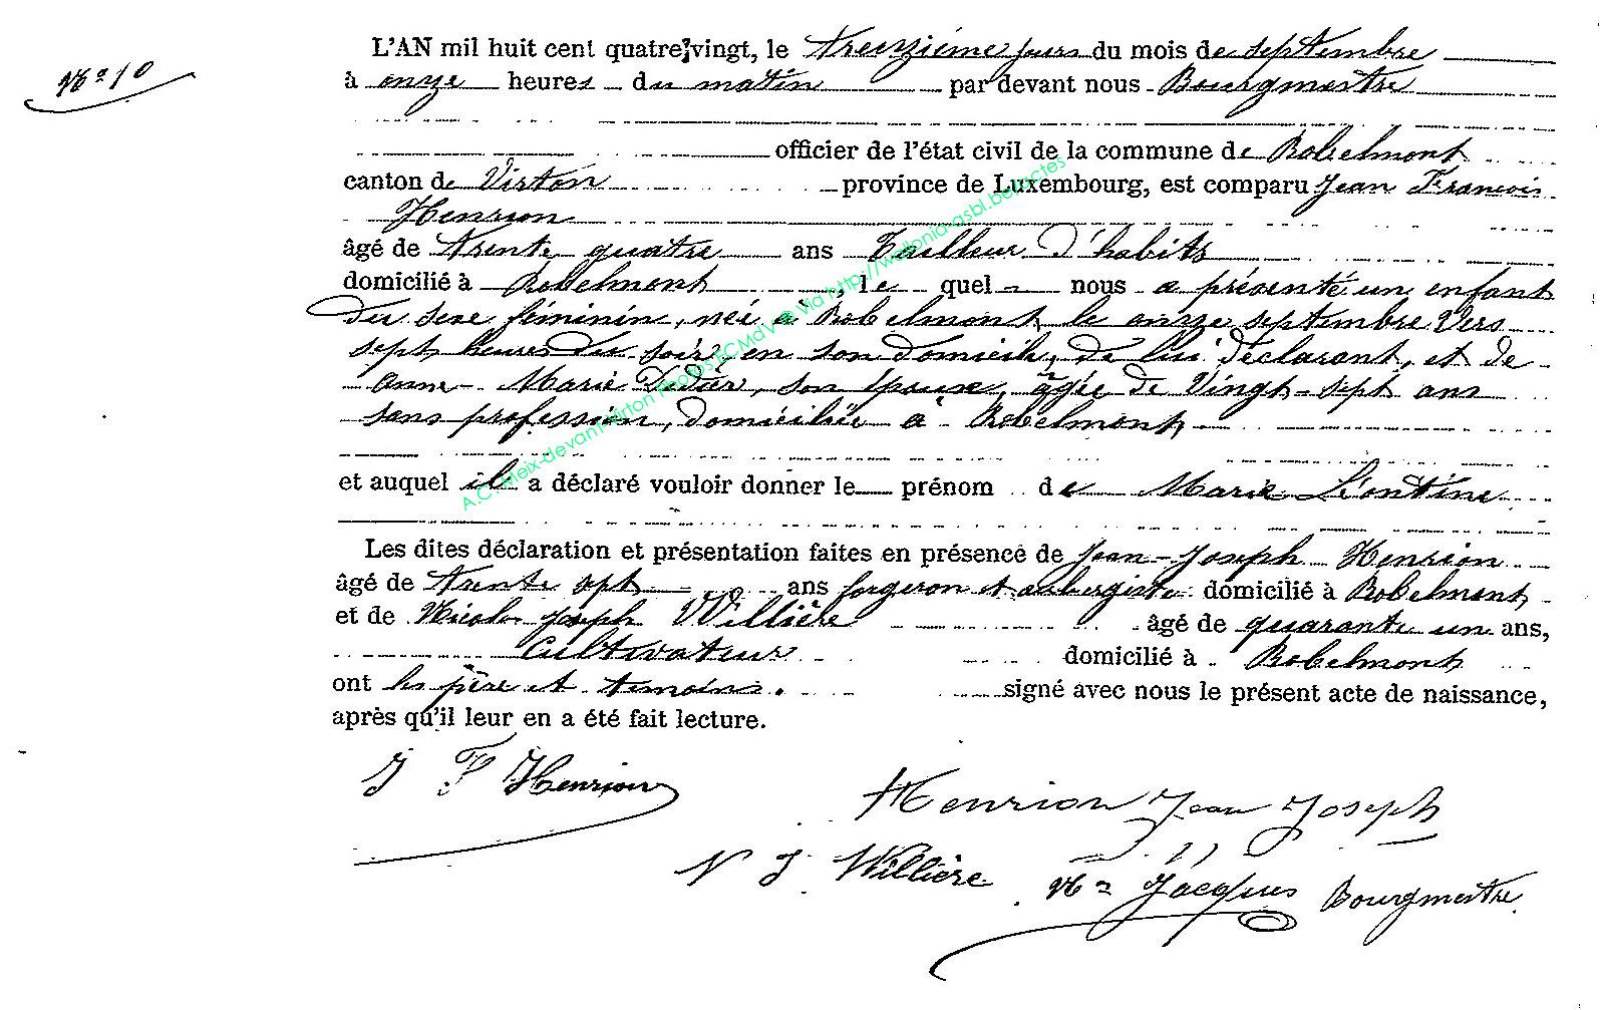 N° 10
L'AN mil huit cent quatre-vingt, le treizième jour du mois de septembre
à onze heures du matin par devant nous Bourgmestre
officier de l'état civil de la commune de Robelmont
canton de Virton province de Luxembourg, est comparu Jean François
Henrion
âgé de trente quatre ans tailleur d'habits
domicilié à Robelmont, le quel nous a présenté un enfant
du sexe féminin, née à Robelmont le onze septembre vers
sept heures du soir, en son domicile, de lui déclarant, et de
Anne-Marie Didier, son épouse, âgée de vingt-sept ans
sans profession, domiciliée à Robelmont
et auquel il a déclaré vouloir donner le prénom de Marie Léontine
Les dites déclaration et présentation faites en présence de Jean-Joseph Henrion
âgé de trente sept ans forgeron et aubergiste domicilié à Robelmont
et de Nicolas Joseph Willière âgé de quarante un ans,
Cultivateur domicilié à Robelmont
ont les père et témoins. signé avec nous le présent acte de naissance,
après qu'il leur en a été fait lecture.
J F Henrion
Henrion Jean Joseph
N J Willière
Jacques Bourgmestre
A.C. Meix-devant-Virton Photos ECMdV © Via http://wallonia-asbl.be/actes